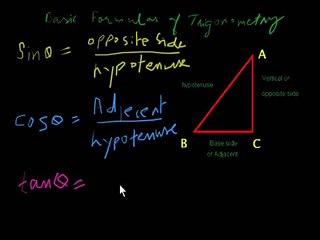 Basic Formulas of Trigonometry
sinθ = opposite side
hypotenuse
cosθ = Adjecent
hypotenuse
tanθ =
A
hypotenuse
Vertical or
opposite side
B
C
Base side
or Adjacent